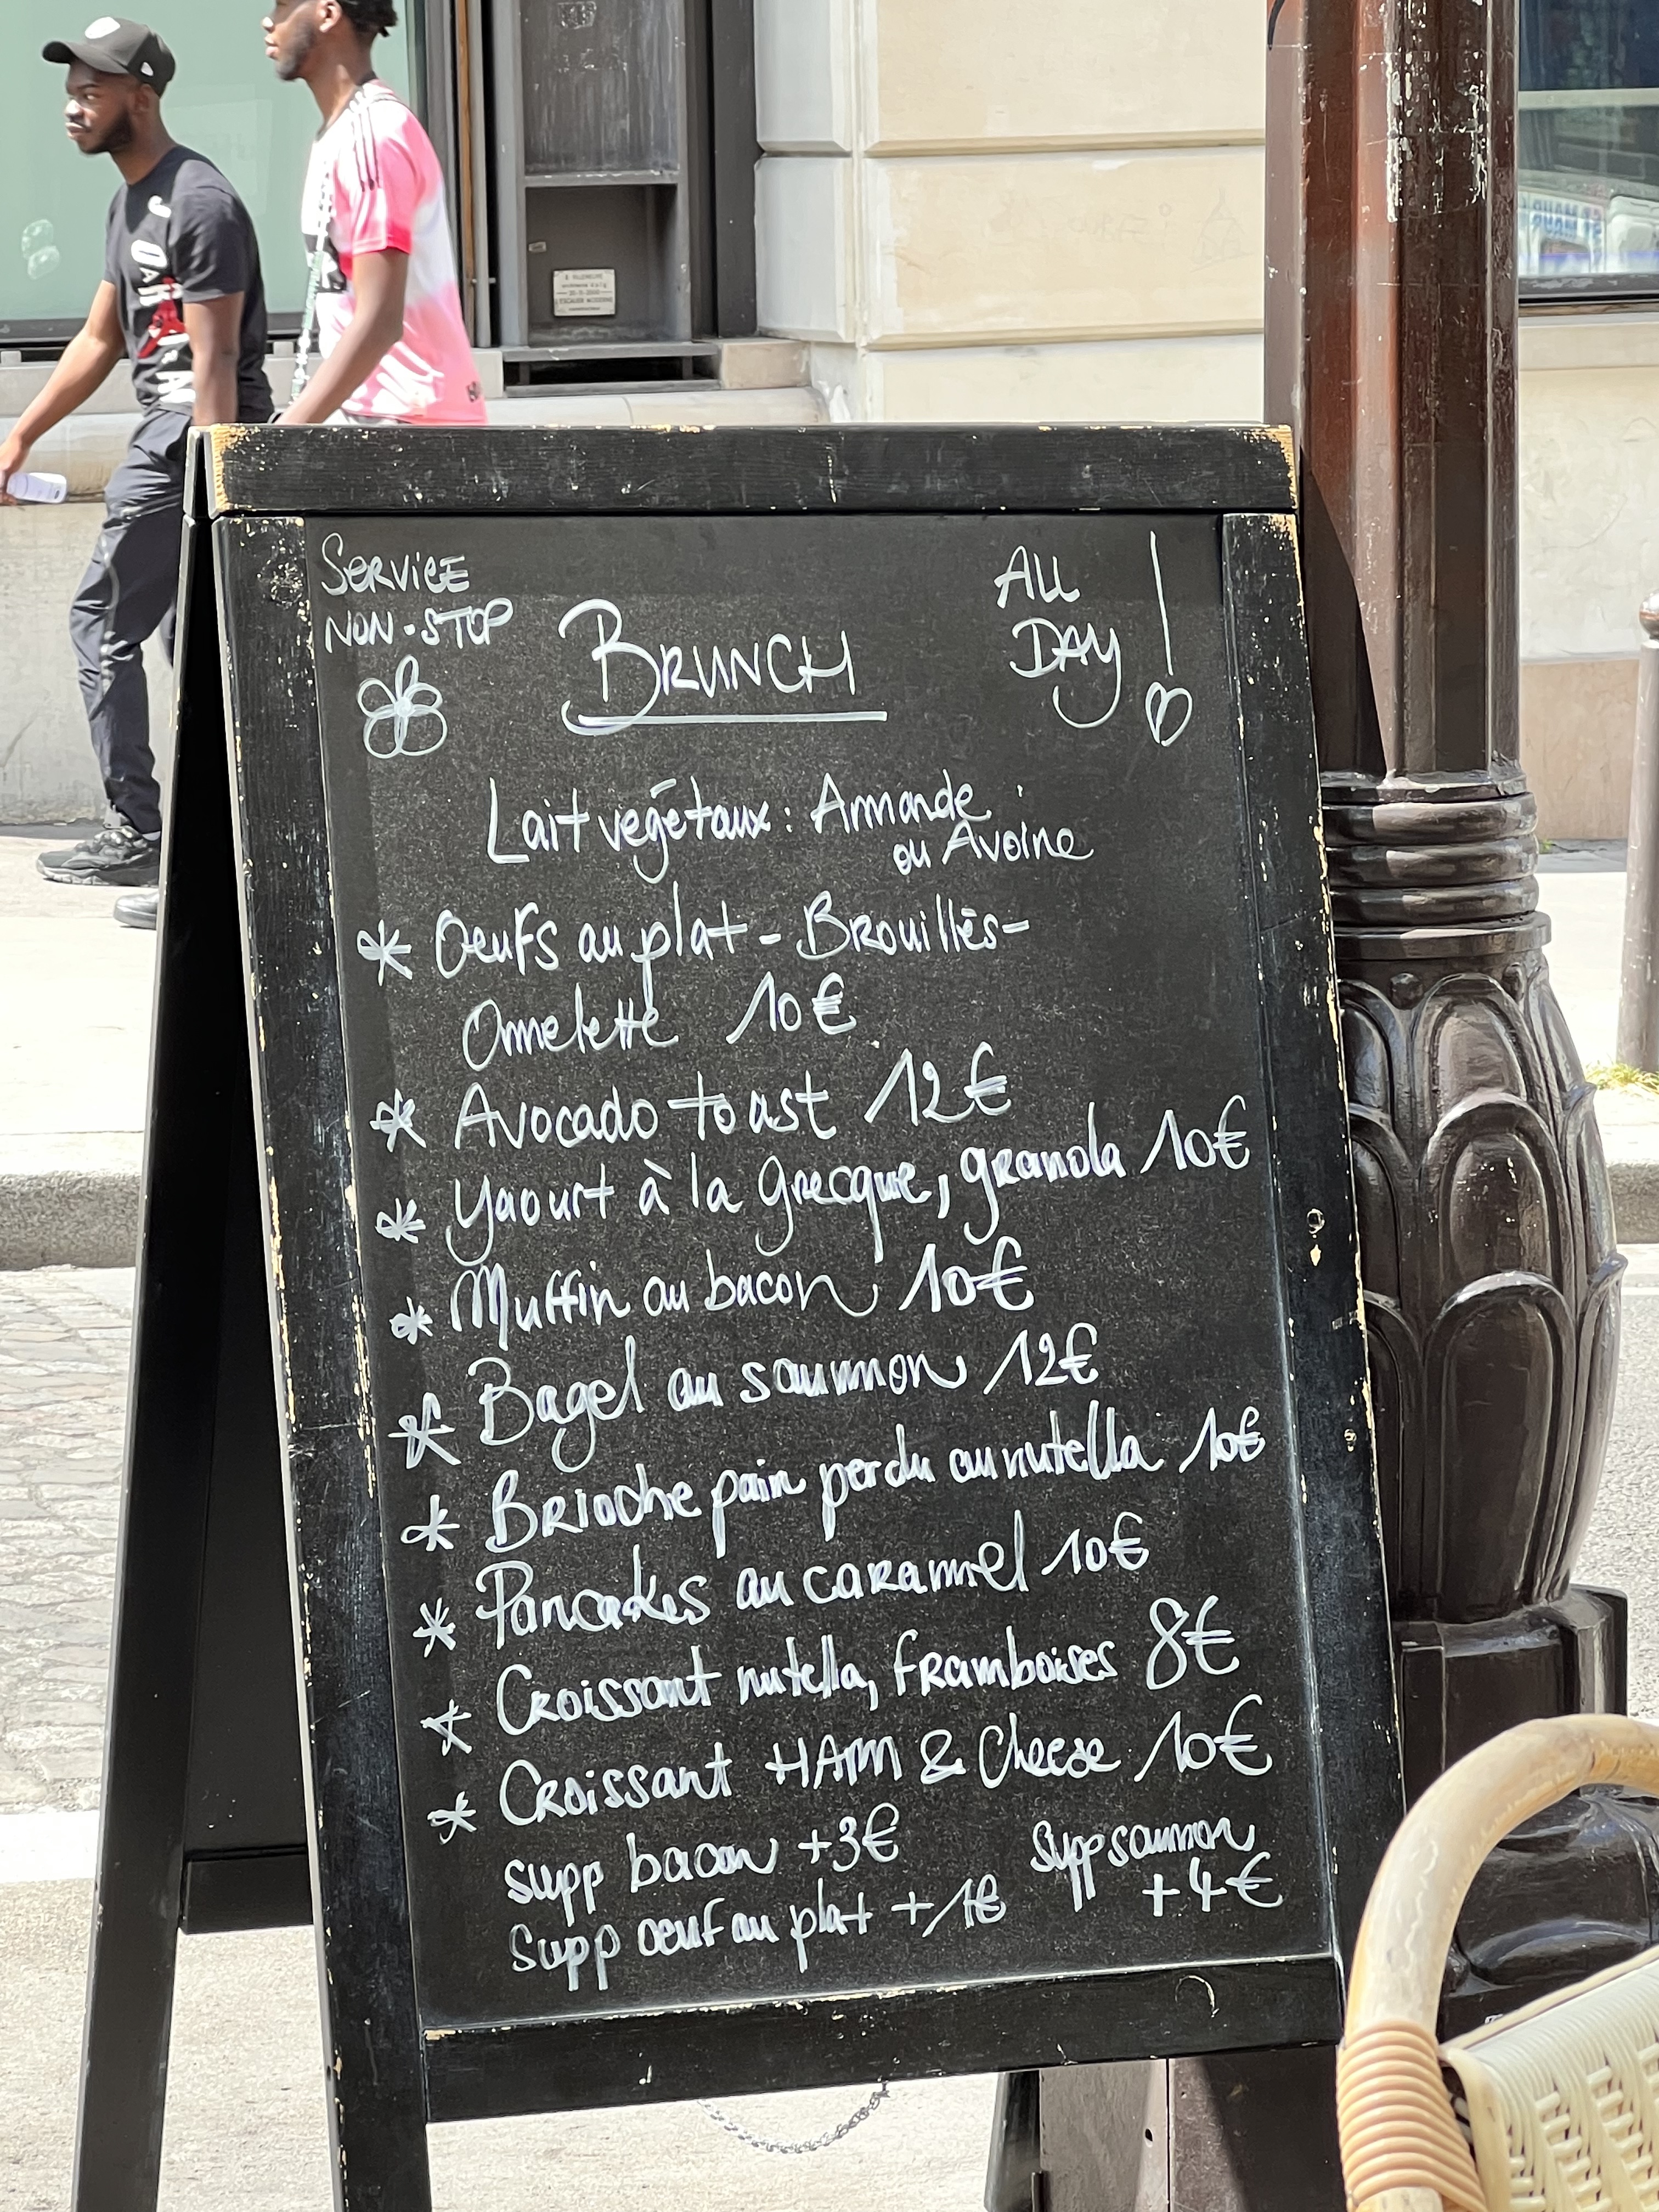 SERVICE
NON-STOP
BRUNCH
ALL
DAY !
Lait végétaux : Amande
ou Avoine
* Oeufs au plat - Brouillés -
Omelette 10€
* Avocado toast 12€
* Yaourt à la grecque, granola 10€
* Muffin au bacon 10€
* Bagel au saumon 12€
* Brioche pain perdu au nutella 10€
* Pancakes au caramel 10€
* Croissant nutella, framboises 8€
* Croissant HAM & Cheese 10€
supp bacon +3€
supp saumon
+4€
Supp oeuf au plat +1€